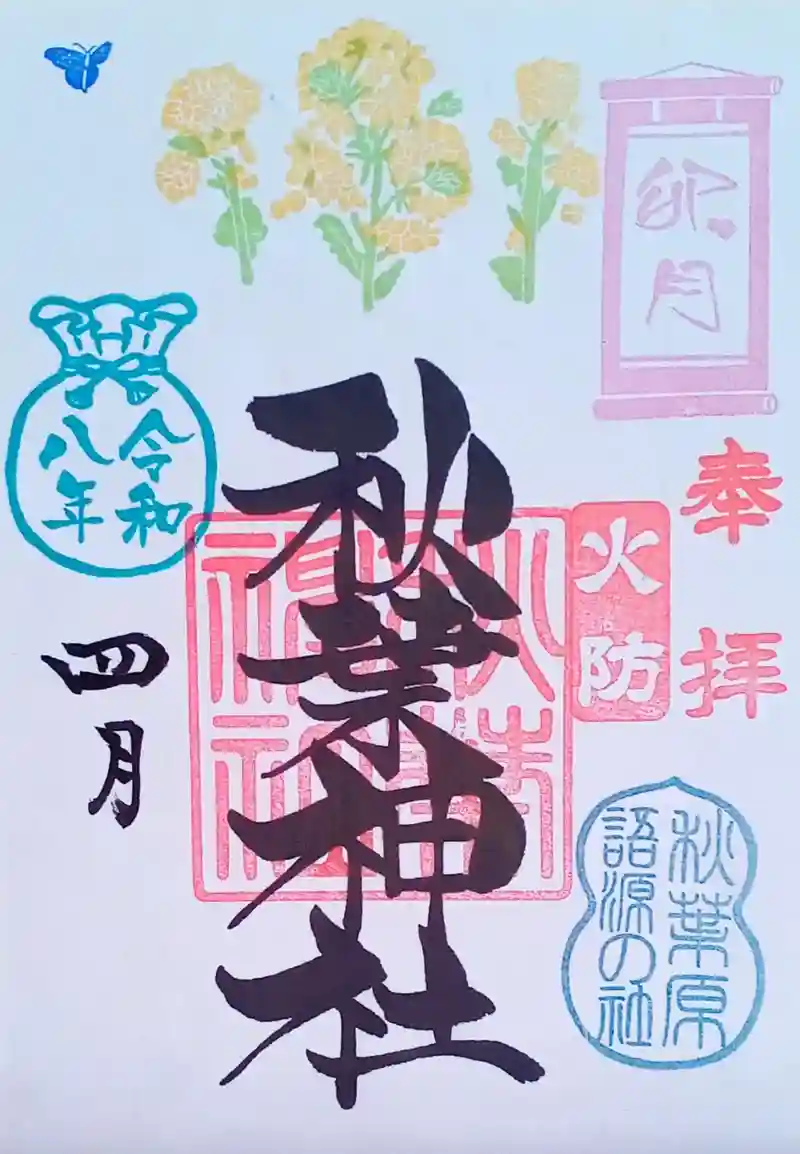 卯月
奉拝
火防
秋葉神社
秋葉神社
令和
八年
四月
秋葉原
語源の社